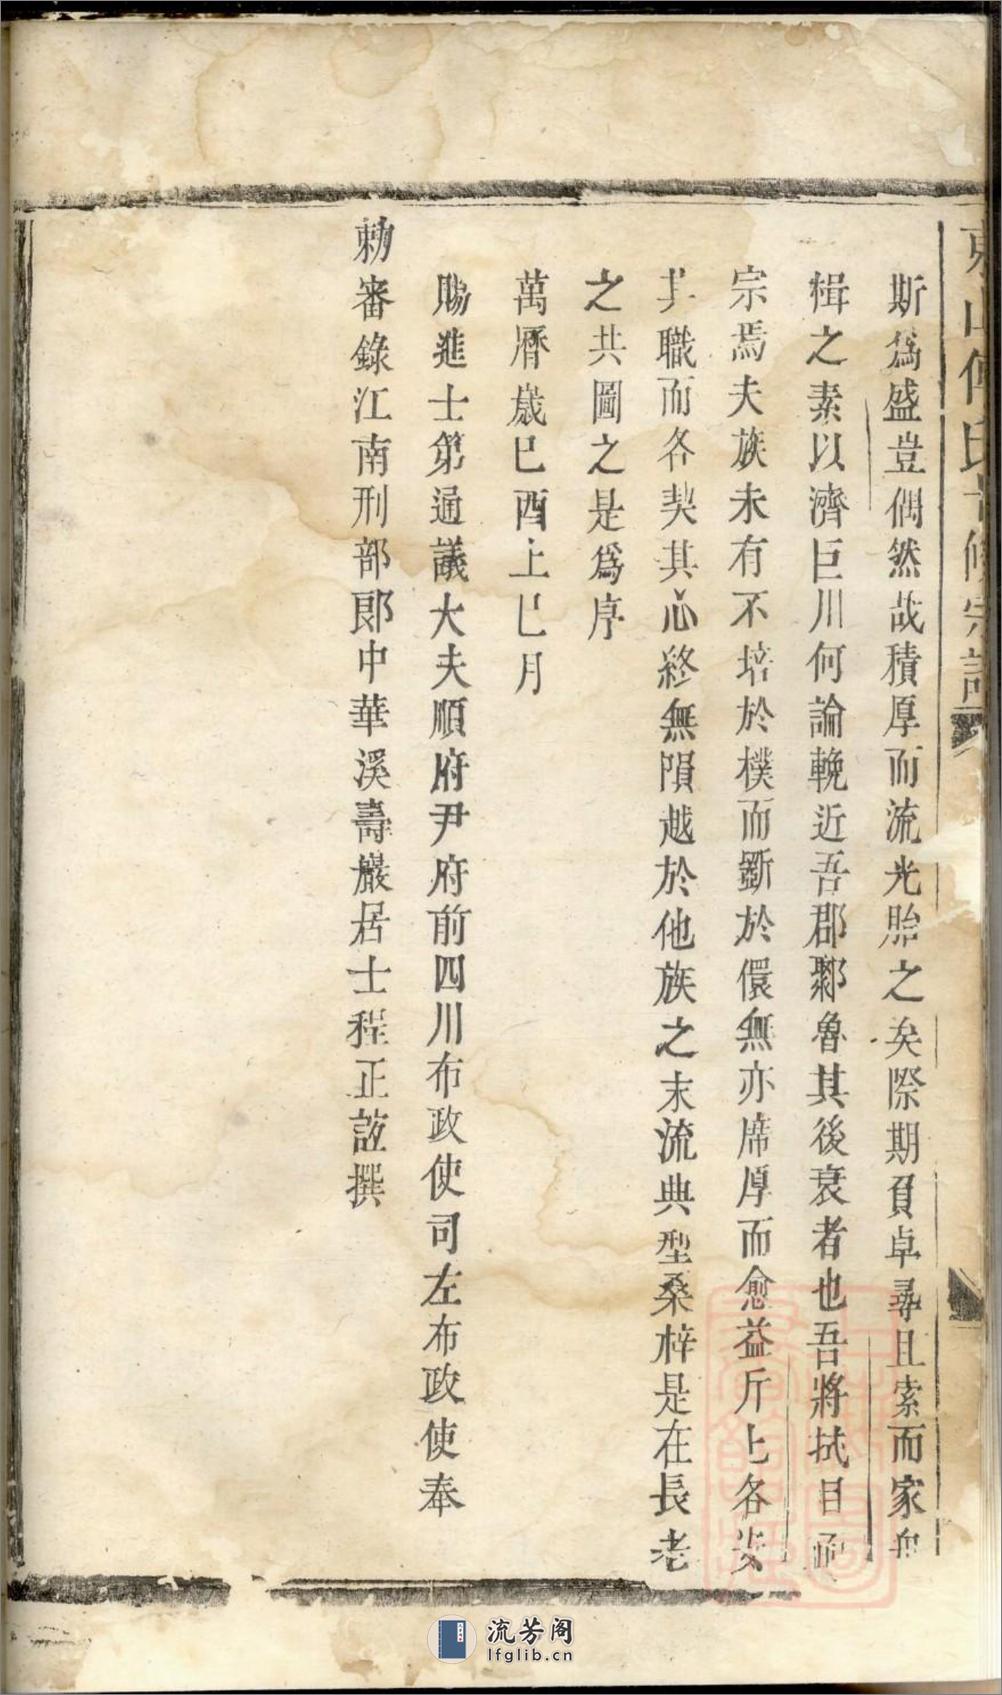 斯為盛豈偶然哉積厚而流光胎之矣際期負卓尋且索而家舟
楫之素以濟巨川何論輓近吾郡鄹魯其後衰者也吾將拭目
宗焉夫族未有不培於樸而斲於儇無亦席厚而愈益斤上各安
其職而各契其心終無隕越於他族之末流典型桑梓是在長老
之共圖之是為序
萬曆歲巳酉上巳月
賜進士第通議大夫順府尹府前四川布政使司左布政使奉
勅審錄江南刑部郎中華溪壽巖居士程正誼撰
流芳阁
lfglib.cn